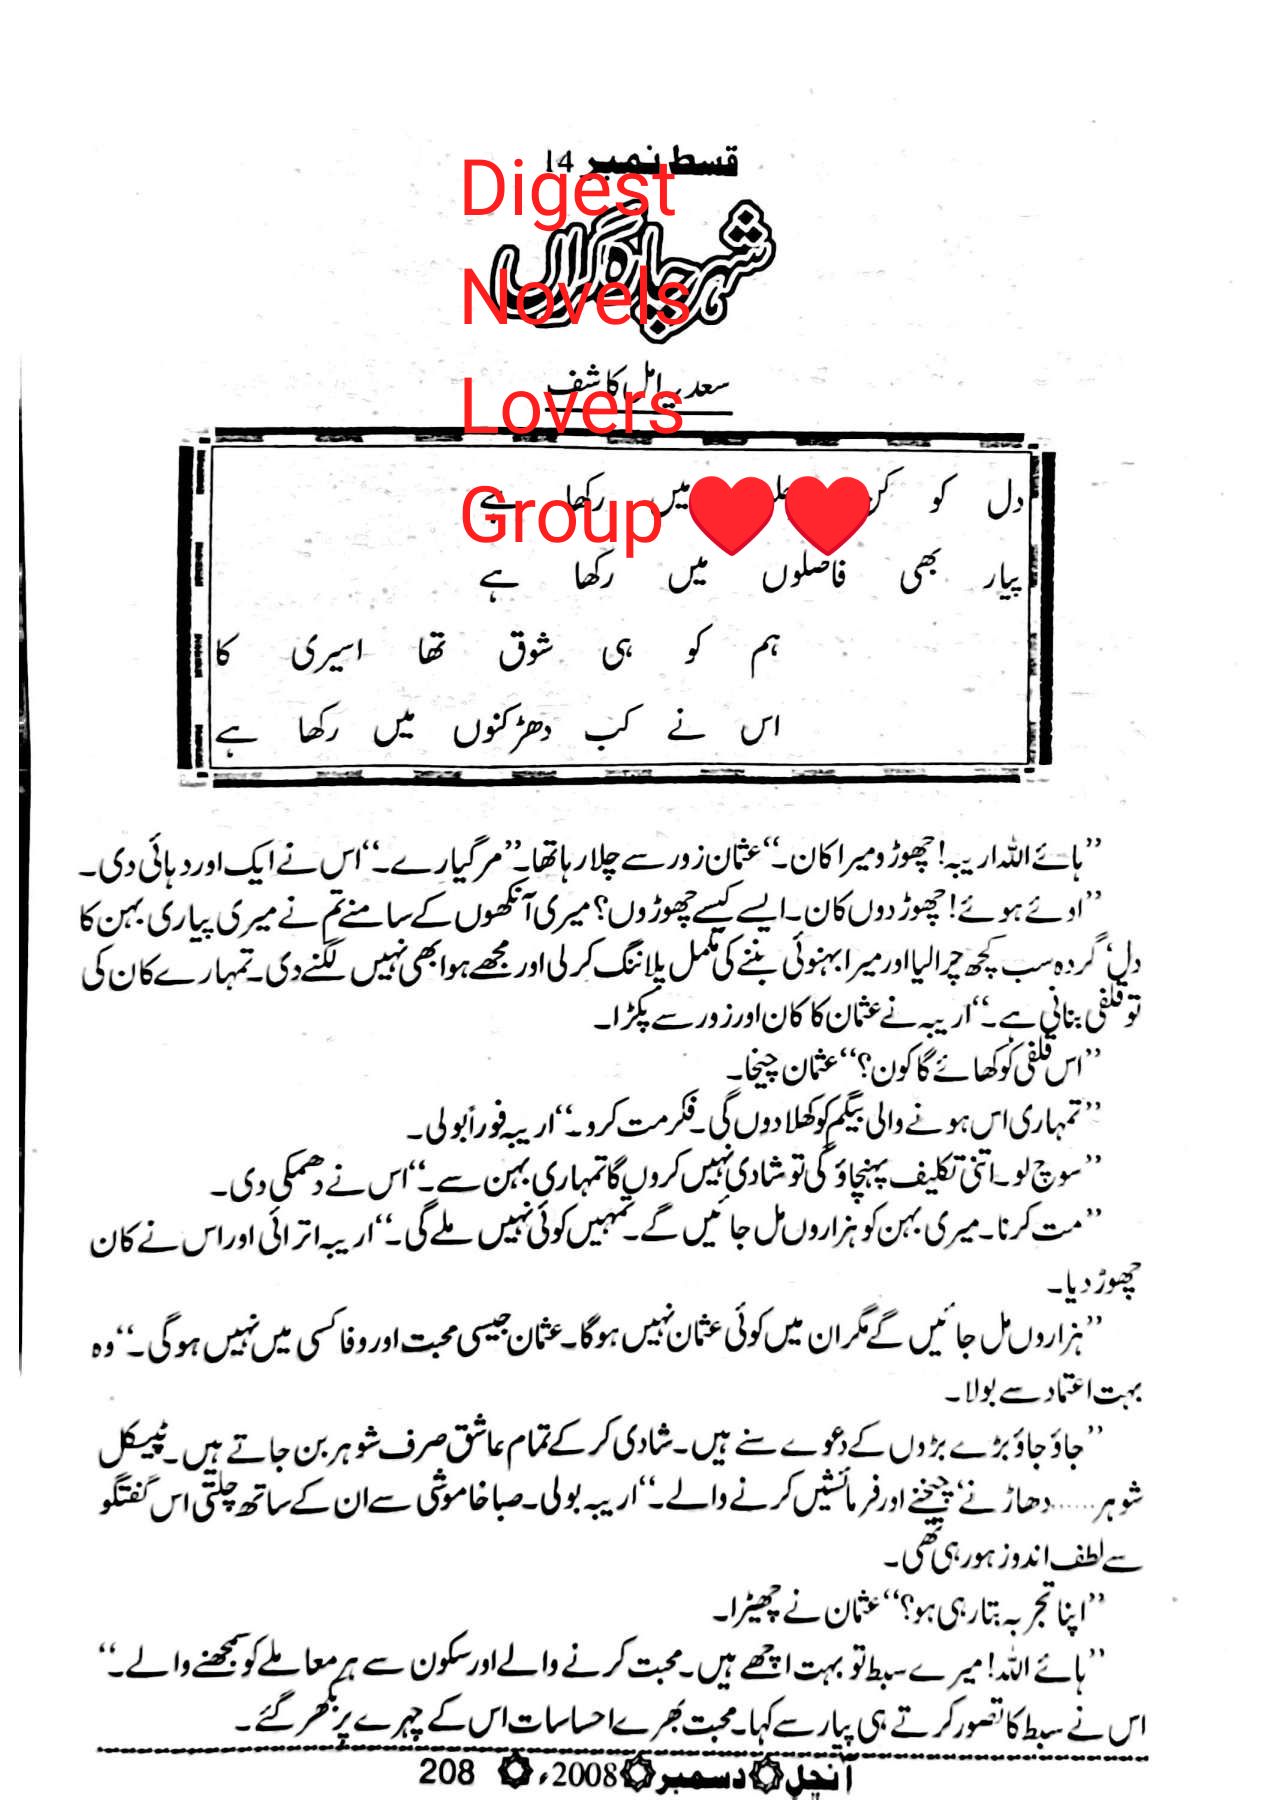 قسط نمبر 14
Digest
شہر چارہ گراں
Novels
سعدیہ امل کاشف
Lovers
دل کو کن میں رکھا ہے
Group ❤❤
پیار بھی فاصلوں میں رکھا ہے
ہم کو ہی شوق تھا اسیری کا
اس نے کب دھڑکنوں میں رکھا ہے
’’ہائے اللہ اریبہ! چھوڑو میرا کان۔‘‘ عثمان زور سے چلا رہا تھا۔ ’’مر گیا رے۔‘‘ اس نے ایک اور دہائی دی۔
’’اوئے ہوئے! چھوڑ دوں کان۔ ایسے کیسے چھوڑ دوں؟ میری آنکھوں کے سامنے تم نے میری پیاری بہن کا
دل‘ گردہ سب کچھ چرا لیا اور میرا بہنوئی بننے کی مکمل پلاننگ کر لی اور مجھے ہوا بھی نہیں لگنے دی۔ تمہارے کان کی
تو قلفی بنانی ہے۔‘‘ اریبہ نے عثمان کا کان اور زور سے پکڑا۔
’’اس قلفی کو کھائے گا کون؟‘‘ عثمان چیخا۔
’’تمہاری اس ہونے والی بیگم کو کھلا دوں گی۔ فکر مت کرو۔‘‘ اریبہ فوراً بولی۔
’’سوچ لو۔ اتنی تکلیف پہنچاؤ گی تو شادی نہیں کروں گا تمہاری بہن سے۔‘‘ اس نے دھمکی دی۔
’’مت کرنا۔ میری بہن کو ہزاروں مل جائیں گے۔ تمہیں کوئی نہیں ملے گی۔‘‘ اریبہ اترائی اور اس نے کان
چھوڑ دیا۔
’’ہزاروں مل جائیں گے مگر ان میں کوئی عثمان نہیں ہوگا۔ عثمان جیسی محبت اور وفا کسی میں نہیں ہوگی۔‘‘ وہ
بہت اعتماد سے بولا۔
’’جاؤ جاؤ بڑے بڑوں کے دعوے سنے ہیں۔ شادی کر کے تمام عاشق صرف شوہر بن جاتے ہیں۔ ٹیپیکل
شوہر......دھاڑنے‘ چیخنے اور فرمائشیں کرنے والے۔‘‘ اریبہ بولی۔ صبا خاموشی سے ان کے ساتھ چلتی اس گفتگو
سے لطف اندوز ہو رہی تھی۔
’’اپنا تجربہ بتا رہی ہو؟‘‘ عثمان نے چھیڑا۔
’’ہائے اللہ! میرے سبط تو بہت اچھے ہیں۔ محبت کرنے والے اور سکون سے ہر معاملے کو سمجھنے والے۔‘‘
اس نے سبط کا تصور کرتے ہی پیار سے کہا۔ محبت بھرے احساسات اس کے چہرے پر بکھر گئے۔
آنچل دسمبر 2008ء 208